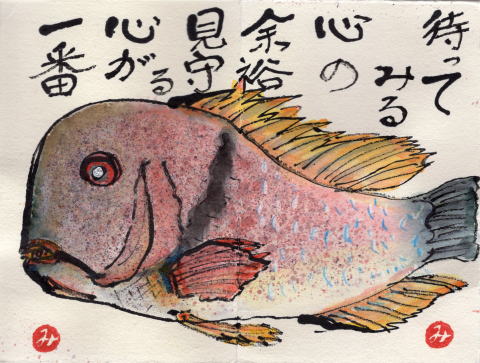 待って
みる
心の
余裕
見守
る
心が
一番
み
み